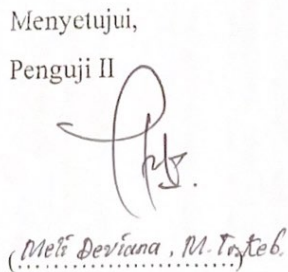 Menyetujui,
Penguji II
(Meli Deviana, M.Tr.Keb)